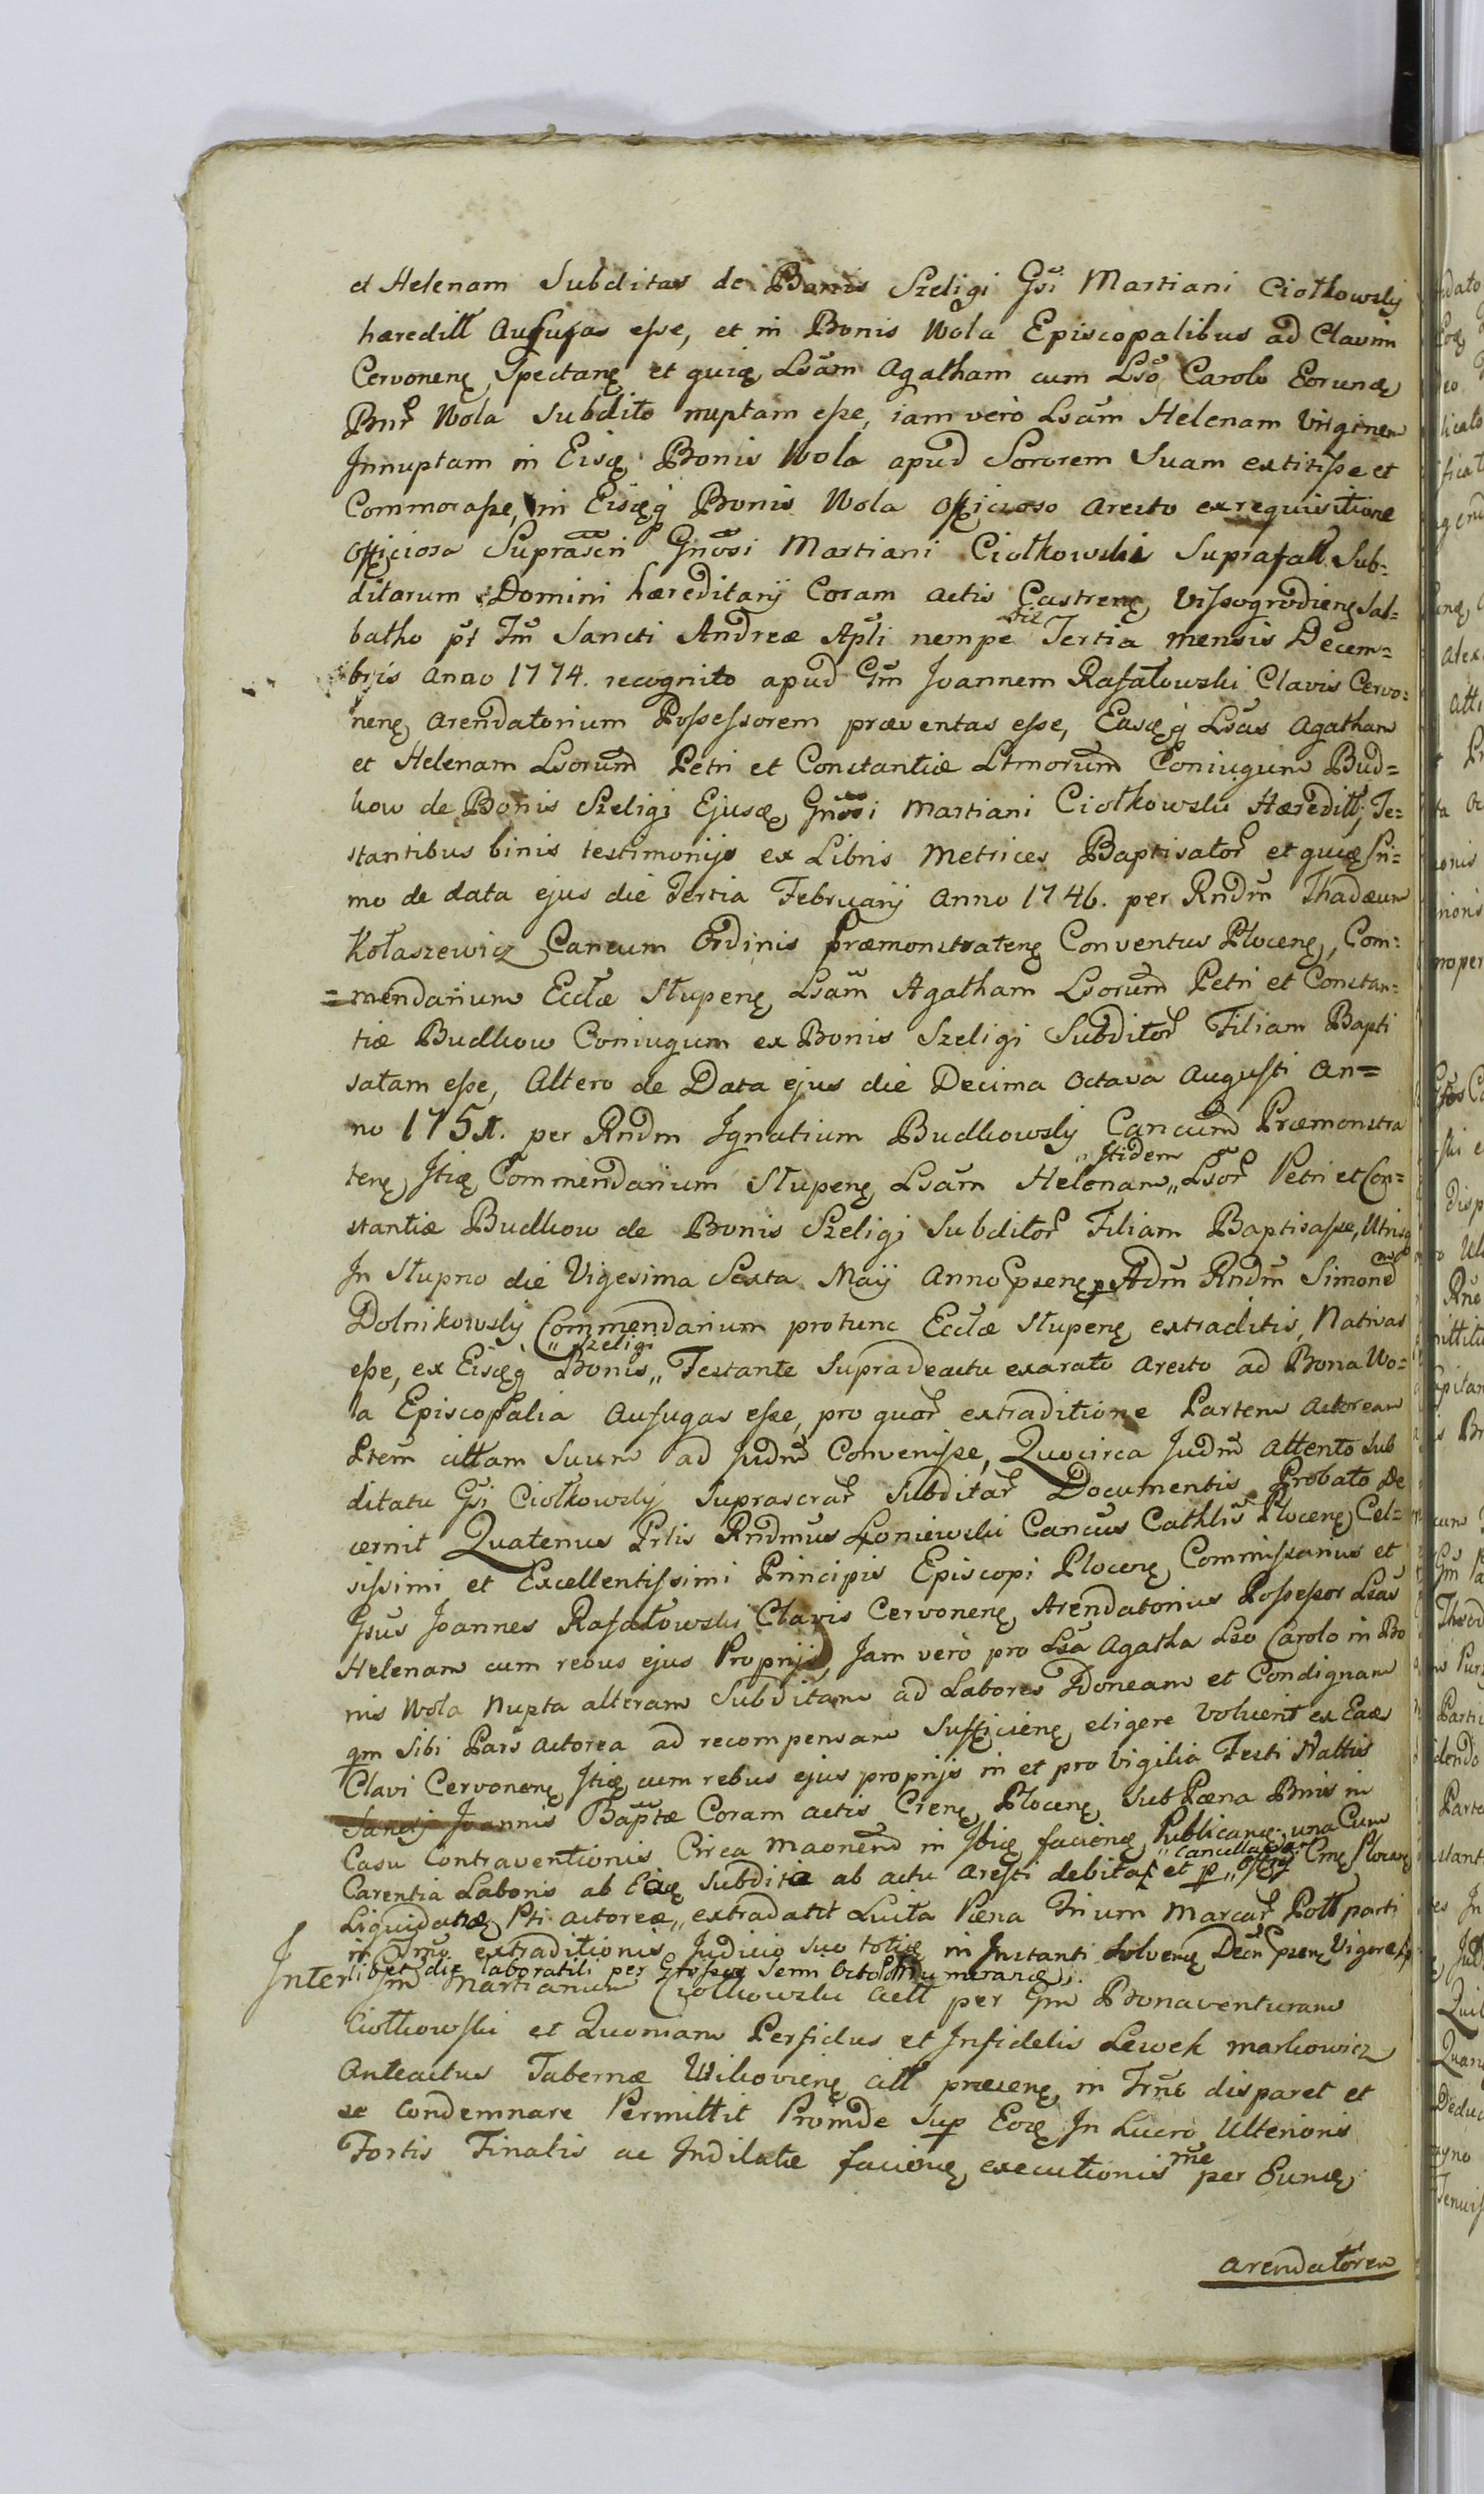 et Helenam Subditas de Bonis Szeligi Gsi Martiani Ciołkowsky
hæreditt Aufugas esse, et in Bonis Wola Episcopalibus ad Clavim
Cervonenę Spectanę et quią Lsam Agatham cum Lso Carolo Eorundę
Bnr Wola Subdito nuptam esse, iam verò Lsam Helenam Virginem
Innuptam in Eisdę Bonis Wola apud Sororem Suam extitisse et
Commorasse, in Eisdęq Bonis Wola officioso Aresto ex requisitione
officiosa Suprascri Gnosi Martiani Ciołkowski Suprafatt Sub=
ditarum Domini hæreditarij Coram actis Castrenę Vissogrodienę Sab=
batho pt Fm Sancti Andreæ Apli nempe die Tertia mensis Decem=
bris Anno 1774. recognito apud Gm Joannem Rafałowski Clavis Cervo=
nenę Arendatorium Possessorem præventas esse, Easdęq Lsas Agatham
et Helenam Lsorum Petri et Constantiæ Ltmorum Coniugum Bud=
kow de Bonis Szeligi Ejusdę Gnosi Martiani Ciołkowski Hæreditt, Te=
stantibus binis testimonijs ex Libris Metrices Baptisator et quię Pri=
mo de data ejus die Tertia Februarij Anno 1746. per Rndm Thadæum
Kołaszewicz Cancum Ordinis Præmonstratenę Conventus Plocenę, Com=
=mendarium Ecclæ Słupenę Lsam Agatham Lsorum Petri et Constan=
tiæ Budkow Coniugum ex Bonis Szeligi Subditor Filiam Bapti
satam esse, Altero de Data ejus die Decima Octava Augusti An=
no 1751. per Rndm Ignatium Budkowsky Cancum Præmonstra
tenę Itię Commendarium Słupenę Lsam Helenam „Itidem„ Lsor Petri et Con=
stantiæ Budkow de Bonis Szeligi Subditor Filiam Baptisasse, Utrisq
In Słupno die Vigesima Sexta Maij Anno Præsenę p Adm Rndm Simonem
Dolnikowsky Commendarium protunc Ecclæ Słupenę extraditis, Nativas
esse, ex Eisdęq Bonis „Szeligi„ Testante Supradeactu exarato Aresto ad Bona Wo=
la Episcopalia Aufugas esse, pro quar extraditione Partem Actoream
Ptem cittam Suum ad Judm Convenisse, Quocirca Judm Attento Sub
ditatu Gsi Ciołkowsky Suprascrar Subditar Documentis Probato De
cernit Quatenus Prlis Rndmus Łoniewski Cancus Cathlis Plocenę Cel=
sissimi et Excellentissimi Principis Episcopi Plocenę Commissarius et
Gsus Joannes Rafałowski Clavis Cervonenę Arendatorius Possessor Lsas
Helenam cum rebus ejus Proprijs, Jam verò pro Lsa Agatha Lso Carolo in Bo
nis Wola Nupta alteram Subditam ad Labores Idoneam et Condignam
qm Sibi Pars Actorea ad recompensam Sufficienę eligere voluerit ex Eadę
Clavi Cervonenę Itię cum rebus ejus proprijs in et pro Vigilia Festi Nattis
Sancti Joannis Baptæ Coram actis Crenę Plocenę Sub Pæna Bnis in
Casu Contraventionis Circa in Ibię facienę Publicanę una Cum
Carentia Laboris ab Eadę Subdita ab actu Aresti debitas et p Cmę Plocenę
Liquidatæ Pti Actoreæ „ extradatit Luita Pæna Trium Marcar Pott parti
in Trno extraditionis Judicio Suo totię in Instanti Solvenę Decri præsenę Vigore
libet die laboratili per Grossos Semi Octo numeranę
Inter Gm Martianum Ciołkowski actt per Gm Bonaventuram
Ciołkowski et Quoniam Perfidus et Infidelis Lewek Markowicz
Anteactus Tabernæ Wilkovienę citt præsenę in Trno disparet et
se Condemnare Permittit Proinde Sup Eodę In Lucro Ulterioris
Fortis Finalis ac Indilatæ facienę executionis rne per Eundę
Arendatorem